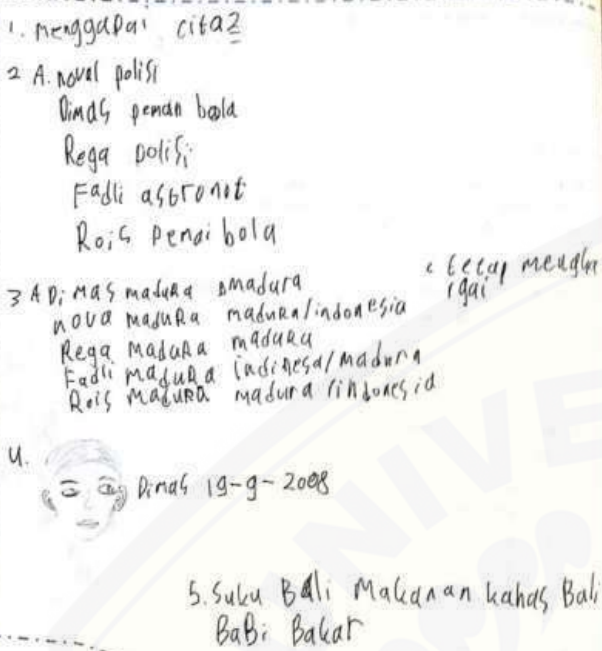 1. menggapai cita2
2 A. noval polisi
Dimas peman bola
Rega polisi
Fadli astronot
Rois pemai bola
3 A Dimas maduRa b madura
nova maduRa madura/indonesia
Rega MaduRa madura
Fadli maduRa indinesa/madura
Rois MaduRa madura/indonesia
c tetap mengha
rgai
4.
Dimas 19-9-2008
5. Suku Bali Makanan kahas Bali
BaBi Bakar